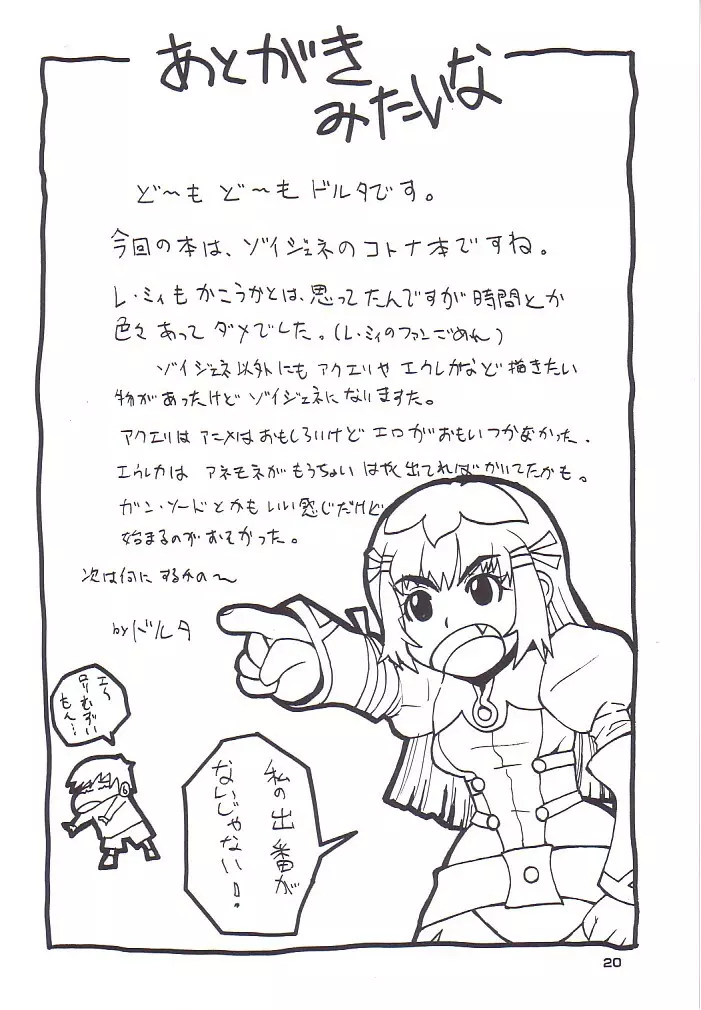 あとがき
みたいな
ど〜も ど〜も ドルタです。
今回の本は、ゾイジェネのコトナ本ですね。
レ・ミィもかこうかとは、思ってたんですが時間とか
色々あってダメでした。(レ・ミィのファンごめん)
ゾイジェネ以外にもアクエリやエウレカなど描きたい
物があったけどゾイジェネになりますた。
アクエリはアニメはおもしろいけどエロがおもいつかなかった.
エウレカはアネモネがもうちょいはやく出てればかいてたかも。
ガン・ソードとかもいい感じだけど
始まるのがおそかった。
次は何にするかの〜
byドルタ
エ〜
ロリむずい
もん…
私の出番が
ないじゃない!
20